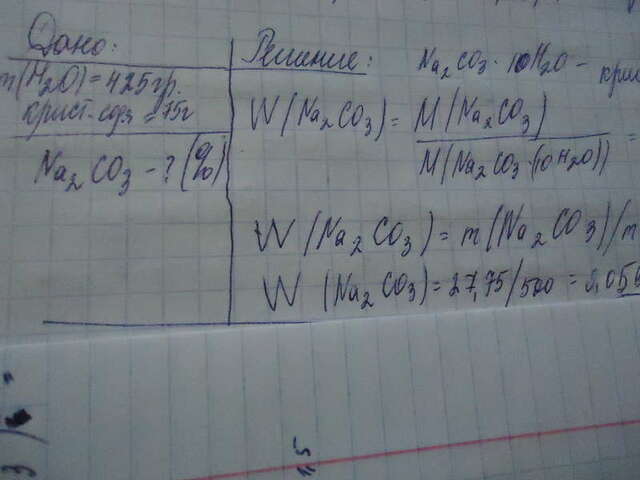 Дано:
m(H₂O) = 425гр.
крист. сода = 75г
Na₂CO₃ - ? (%)
Решение: Na₂CO₃ · 10H₂O -
W(Na₂CO₃) = M(Na₂CO₃)
M(Na₂CO₃ · (10H₂O)) =
W (Na₂CO₃) = m(Na₂CO₃)/m
W (Na₂CO₃) = 27,75/500 = 0,05
15
3